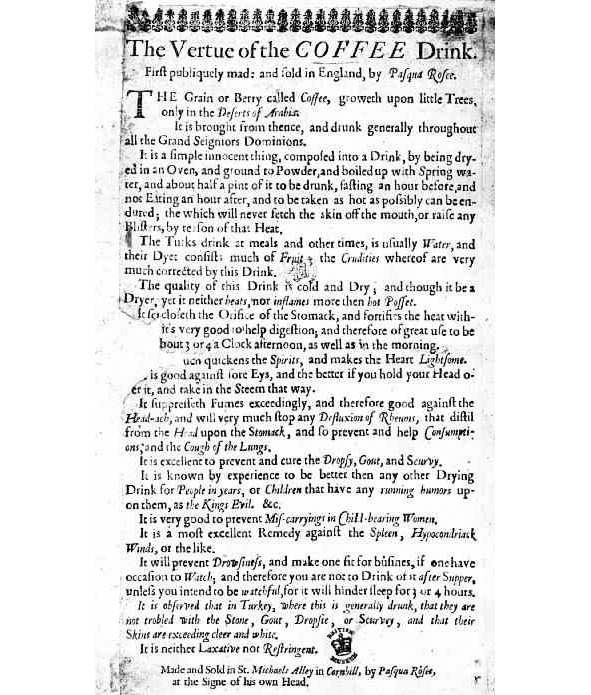 The Vertue of the COFFEE Drink.
First publiquely made and sold in England, by Pasqua Rosee.
THE Grain or Berry called Coffee, groweth upon little Trees,
only in the Deserts of Arabia.
It is brought from thence, and drunk generally throughout
all the Grand Seigniors Dominions.
It is a simple innocent thing, composed into a Drink, by being dry-
ed in an Oven, and ground to Powder, and boiled up with Spring wa-
ter, and about half a pint of it to be drunk, fasting an hour before, and
not Eating an hour after, and to be taken as hot as possibly can be en-
dured; the which will never fetch the skin off the mouth, or raise any
Blisters, by reason of that Heat.
The Turks drink at meals and other times, is usually Water, and
their Dyet consists much of Fruit; the Crudities whereof are very
much corrected by this Drink.
The quality of this Drink is cold and Dry; and though it be a
Dryer, yet it neither heats, nor inflames more then hot Posset.
It so closeth the Orifice of the Stomack, and fortifies the heat with-
it's very good to help digestion; and therefore of great use to be
bout 3 or 4 a Clock afternoon, as well as in the morning.
uch quickens the Spirits, and makes the Heart Lightsome.
is good against sore Eys, and the better if you hold your Head o-
er it, and take in the Steem that way.
It suppresseth Fumes exceedingly, and therefore good against the
Head-ach, and will very much stop any Defluxion of Rheums, that distil
from the Head upon the Stomack, and so prevent and help Consumpti-
ons; and the Cough of the Lungs.
It is excellent to prevent and cure the Dropsy, Gout, and Scurvy.
It is known by experience to be better then any other Drying
Drink for People in years, or Children that have any running humors up-
on them, as the Kings Evil. &c.
It is very good to prevent Mis-carryings in Child-bearing Women.
It is a most excellent Remedy against the Spleen, Hypocondriack
Winds, or the like.
It will prevent Drowsiness, and make one fit for busines, if one have
occasion to Watch; and therefore you are not to Drink of it after Supper,
unless you intend to be watchful, for it will hinder sleep for 3 or 4 hours.
It is observed that in Turkey, where this is generally drunk, that they are
not trobled with the Stone, Gout, Dropsie, or Scurvey, and that their
Skins are exceeding cleer and white.
It is neither Laxative nor Restringent.
BRITISH
MUSEUM
Made and Sold in St. Michaels Alley in Cornhill, by Pasqua Rosee,
at the Signe of his own Head.